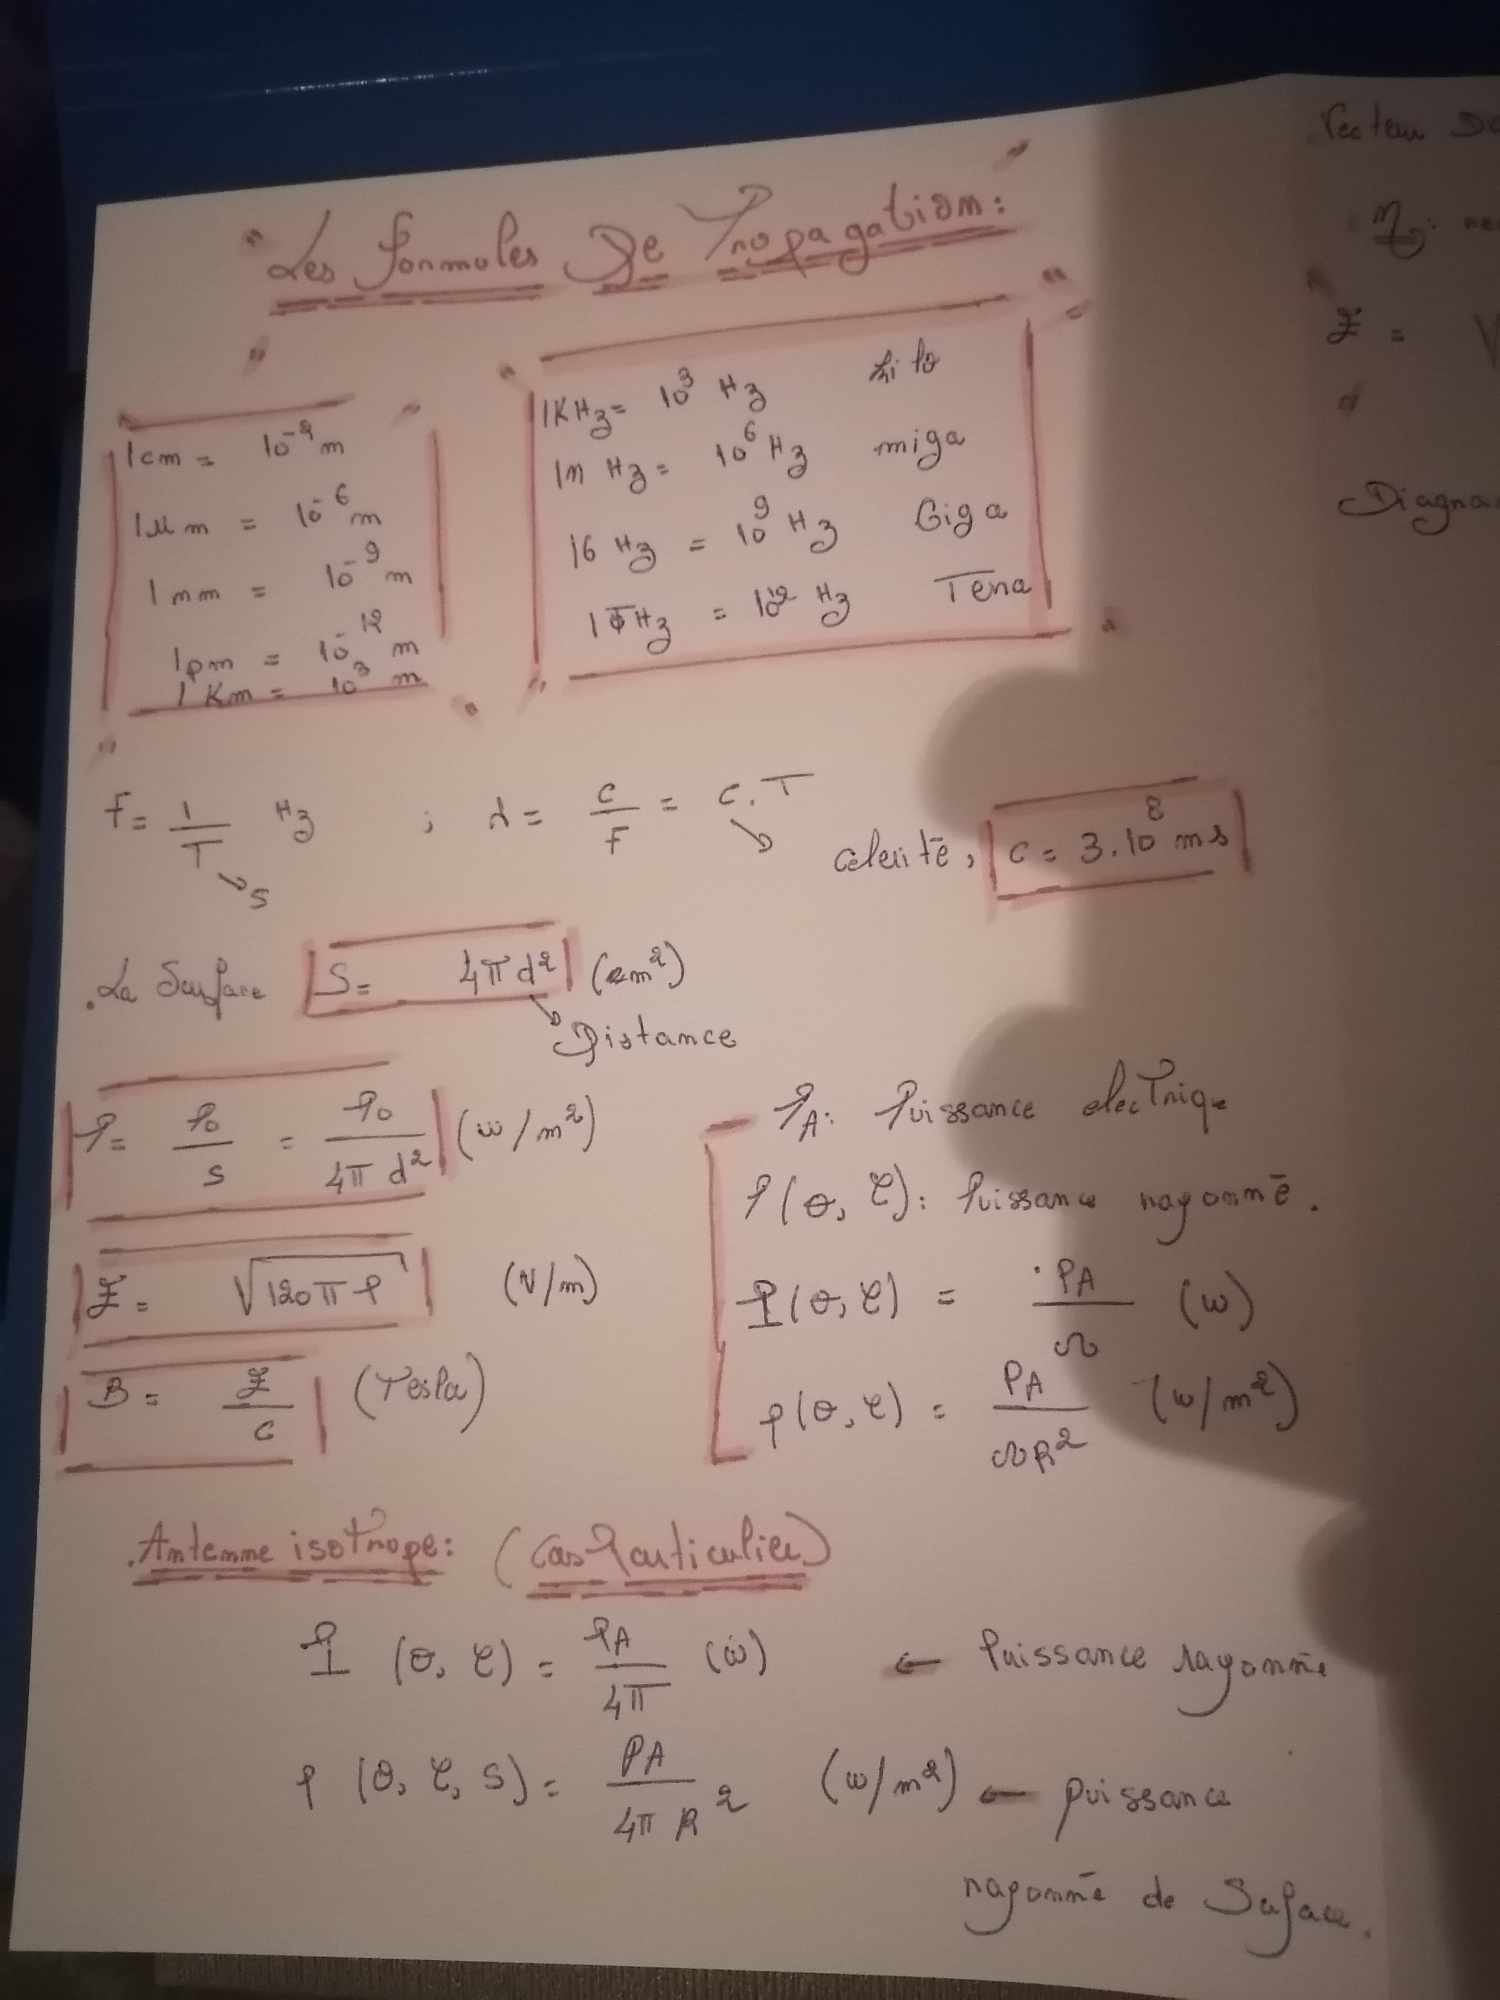 Les formules De Propagation:
1cm = 10^-2 m
1μm = 10^-6 m
1nm = 10^-9 m
1pm = 10^-12 m
1Km = 10^3 m
1KHz = 10^3 Hz kilo
1M Hz = 10^6 Hz miga
1G Hz = 10^9 Hz Giga
1THz = 10^12 Hz Tera
F = 1/T Hz ; λ = C/F = C.T
s
celerité, C = 3.10^8 ms
.La Surface S = 4π d² (m²)
Distance
P = P0/S = P0/4π d² (w/m²)
E = √120π P (V/m)
B = E/C (Tesla)
PA: Puissance electrique
P(θ, φ): Puissance rayonné.
P(θ, φ) = PA/Ω (w)
p(θ, φ) = PA/ΩR² (w/m²)
.Antenne isotrope: (Cas Particulier)
P (θ, φ) = PA/4π (w) ← Puissance rayonné
p (θ, φ, S) = PA/4π R² (w/m²) ← puissance
rayonné de Suface.
Vecteur
E = √